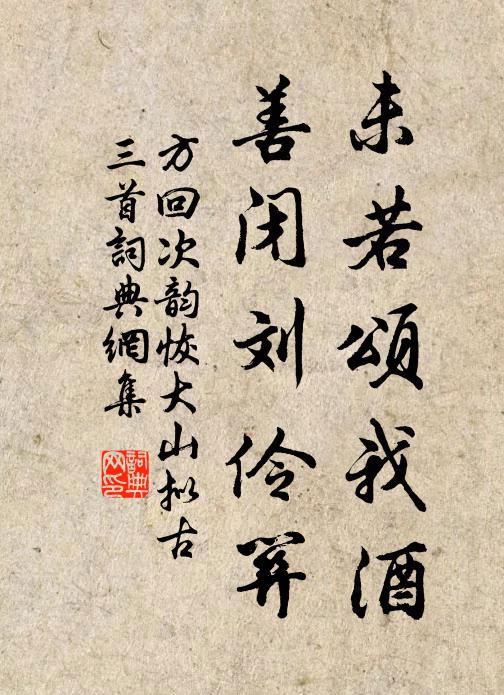 未若頌我酒
善闭刘伶关
方回次韵恢大山拟古
三首詞典網集
詞典
网印